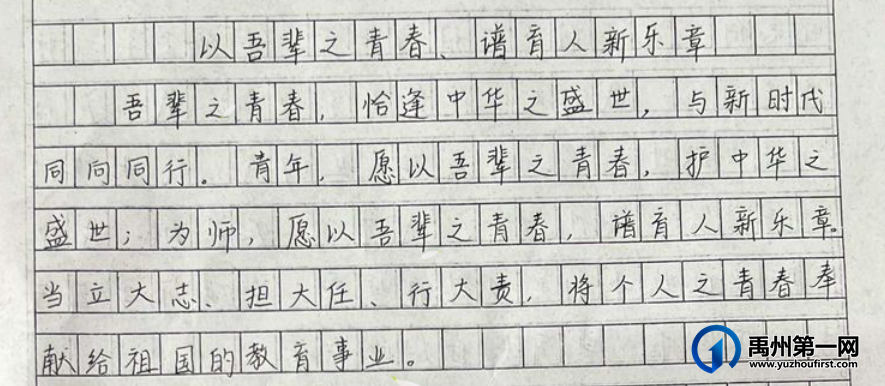 以吾辈之青春、谱育人新乐章
吾辈之青春，恰逢中华之盛世，与新时代
同向同行。青年，愿以吾辈之青春，护中华之
盛世；为师，愿以吾辈之青春，谱育人新乐章。
当立大志、担大任、行大责，将个人之青春奉
献给祖国的教育事业。
禹州第一网
www.yuzhoufirst.com